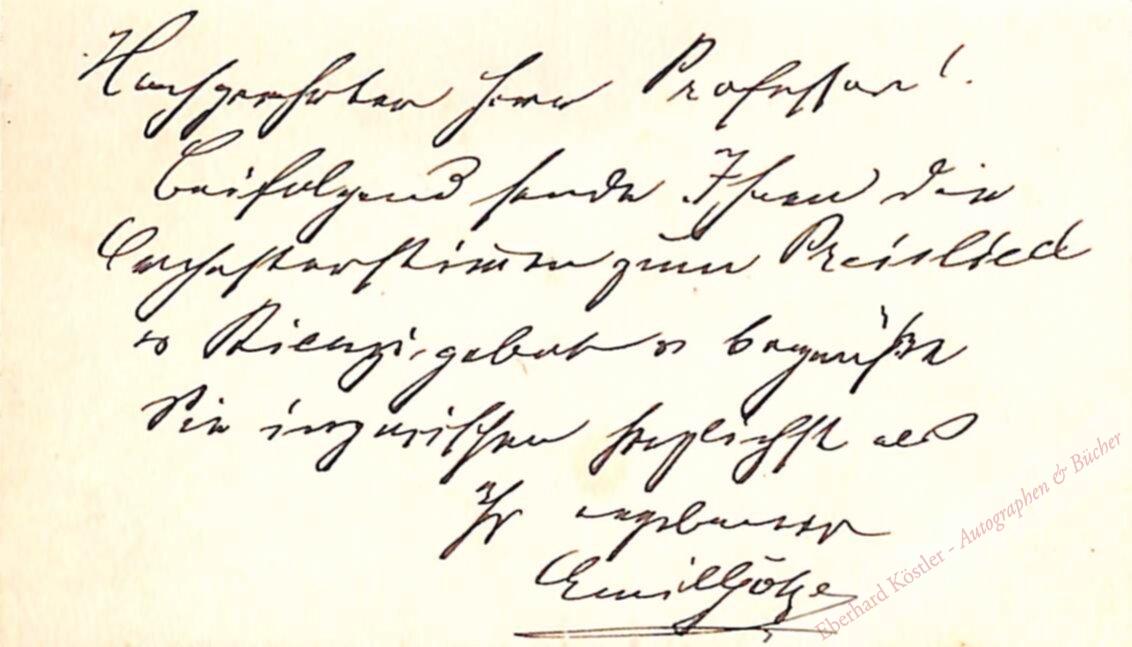 Hochgeehrter Herr Professor!
Beifolgend sende Ihnen die
Orchesterstimmen zum Preislied
u Rienzi-gebet u begrüße
Sie inzwischen herzlichst als
Ihr ergebenster
Emil Götze
Eberhard Köstler - Autographen & Bücher